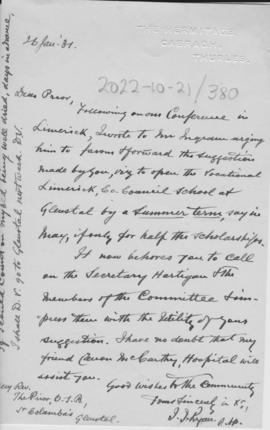 THE HERMITAGE,
CABRAGH,
THURLES.
26 Jan '31.
2022-10-21/380
Dear Prior,
Following on our Conference in
Limerick, I wrote to Mr Ingram urging
him to favour & forward the suggestion
made by you, viz to open the Vocational
Limerick, Co. Council School at
Glenstal by a Summer term, say in
May, if only for half the scholarships.
It now behoves you to call
on the Secretary Hartigan & the
members of the Committee & im-
press them with the utility of your
suggestion. I have no doubt that my
friend Canon McCarthy, Hospital will
assist you.
Good wishes to the Community
Yours Sincerely in Xt,
J. J. Ryan P.P.
Very Rev.
The Prior, O.S.B,
St Columba's
Glenstal.
I shall D.V. go to Glenstal